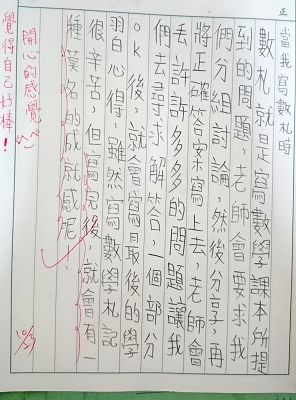 正
當我寫數札時
數札就是寫數學課本所提
到的問題，老師會要求我
們分組討論，然後分享，再
將正確答案寫上去，老師會
丟許許多多的問題讓我
們去尋求解答，一個部分
OK後，就會寫最後的學
習心得，雖然寫數學札記
很辛苦，但寫完後，就會有一
種莫名的成就感呢！
開心的感覺
覺得自己好棒！